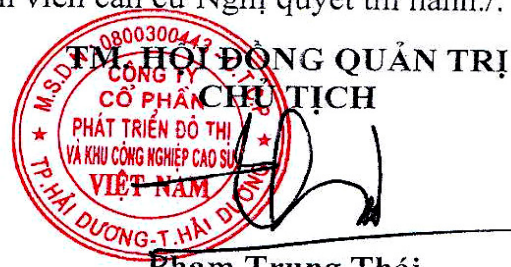 viên căn cứ Nghị quyết thi hành./.
TM. HỘI ĐỒNG QUẢN TRỊ
CHỦ TỊCH
M.S.D.N: 0800300443 - C.T.C.P
CÔNG TY
CỔ PHẦN
PHÁT TRIỂN ĐÔ THỊ
VÀ KHU CÔNG NGHIỆP CAO SU
VIỆT NAM
TP.HẢI DƯƠNG-T.HẢI DƯƠNG
Phạm Trung Thái